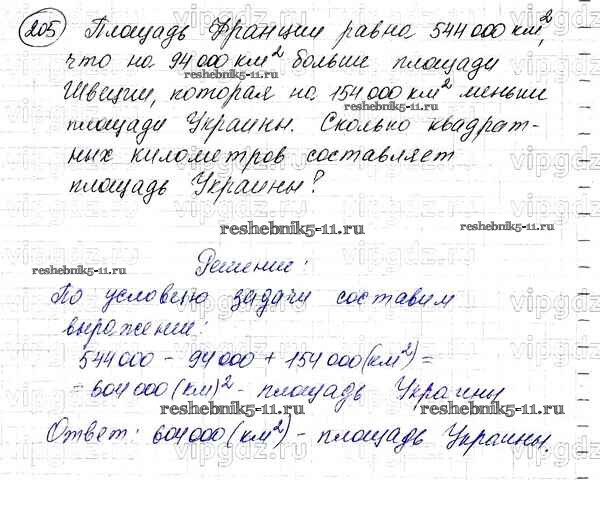 205 Площадь Франции равна 544 000 км²,
что на 94 000 км² больше площади
reshebnik5-11.ru
Швеции, которая на 154 000 км² меньше
reshebnik5-11.ru
площади Украины. Сколько квадрат-
ных километров составляет
площадь Украины?
reshebnik5-11.ru
Решение:
reshebnik5-11.ru
По условию задачи составим
выражение:
544 000 - 94 000 + 154 000 (км²) =
= 604 000 (км)² - площадь Украины
reshebnik5-11.ru
Ответ: 604 000 (км²) - площадь Украины.
reshebnik5-11.ru
vipgdz